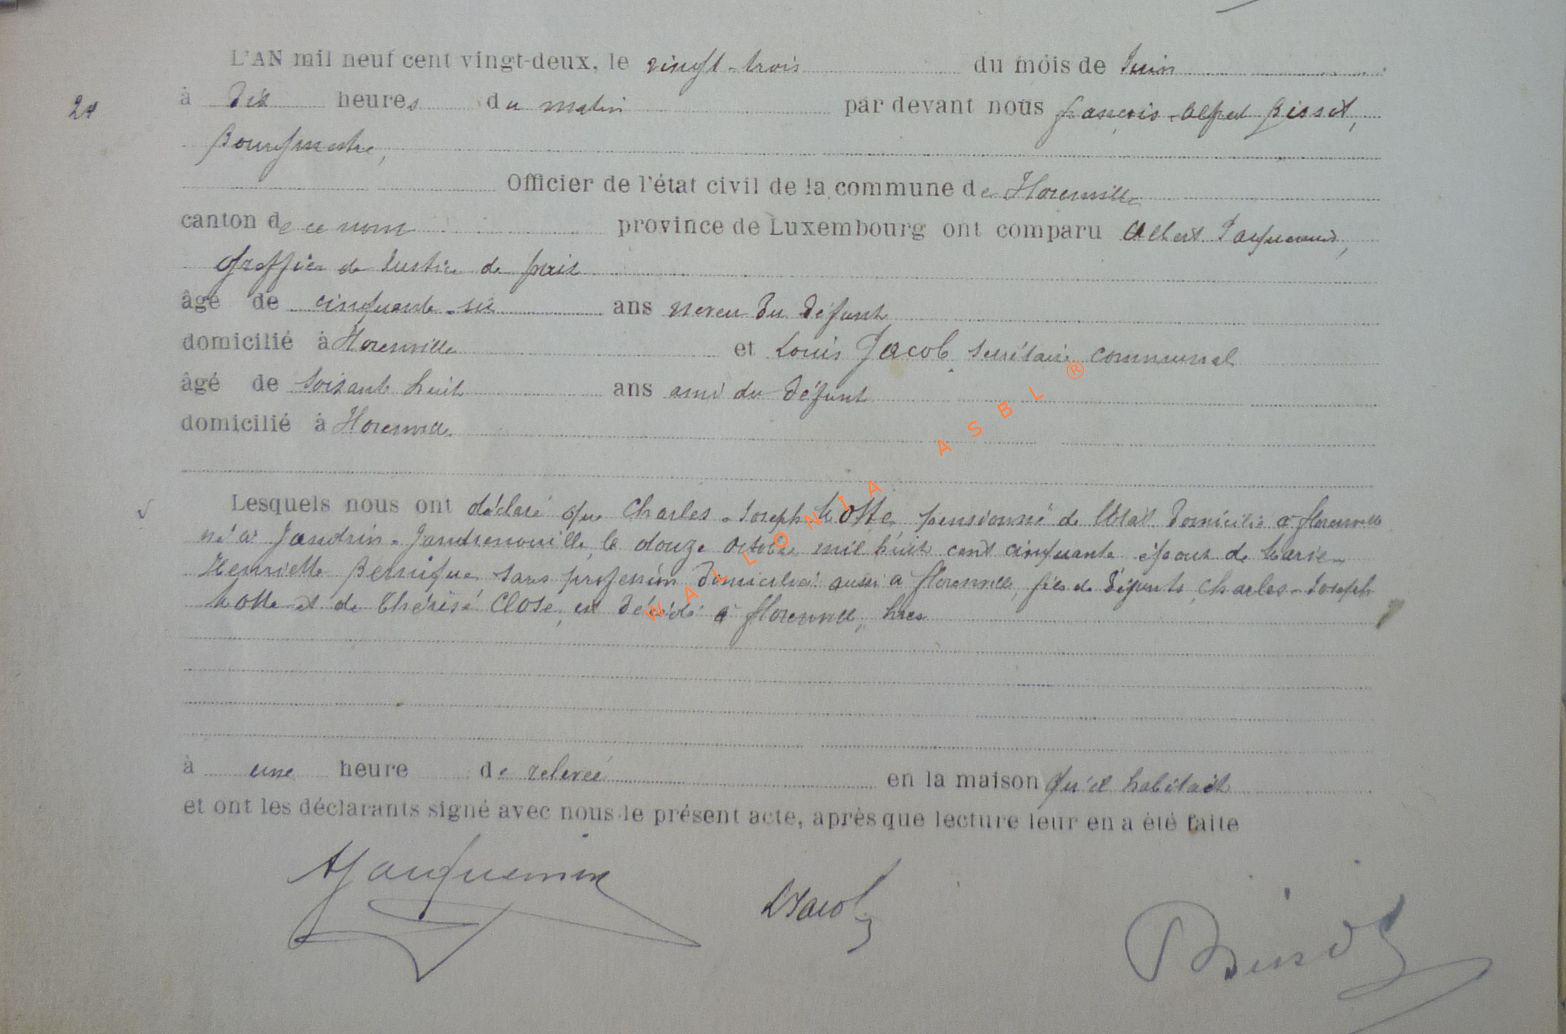 L'AN mil neuf cent vingt-deux, le vingt-trois du mois de Juin
24 à Dix heures du matin par devant nous françois-Alfred Bissot,
Bourgmestre,
Officier de l'état civil de la commune de Florenville
canton de ce nom province de Luxembourg ont comparu Albert Jacquemin,
Greffier de Justice de paix
âgé de cinquante-six ans neveu du défunt
domicilié à Florenville et Louis Jacob secrétaire communal
âgé de soixante huit ans ami du défunt
domicilié à Florenville
Lesquels nous ont déclaré que Charles-Joseph Hotte pensionné de l'état domicilié à florenville
né à Jandrin-Jandrenouille, le douze octobre mil huit cent cinquante époux de Marie-
Henriette sans profession domiciliée aussi à florenville, fils de défunts Charles-Joseph
Hotte et de Thérèse Close, est décédé à florenville, hier
à une heure de relevée en la maison qu'il habitait
et ont les déclarants signé avec nous le présent acte, après que lecture leur en a été faite
AJacquemin LJacob Bissot
WALLONIA ASBL ®